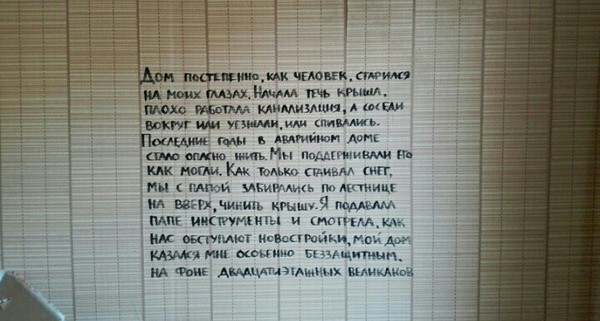 Дом постепенно, как человек, старился
на моих глазах. Начала течь крыша.
плохо работала канализация, а соседи
вокруг или уезжали, или спивались.
Последние годы в аварийном доме
стало опасно жить. Мы поддерживали его
как могли. Как только стаивал снег,
мы с папой забирались по лестнице
на вверх, чинить крышу. Я подавала
папе инструменты и смотрела, как
нас обступают новостройки, мой дом
казался мне особенно беззащитным.
на фоне двадцатиэтажных великанов